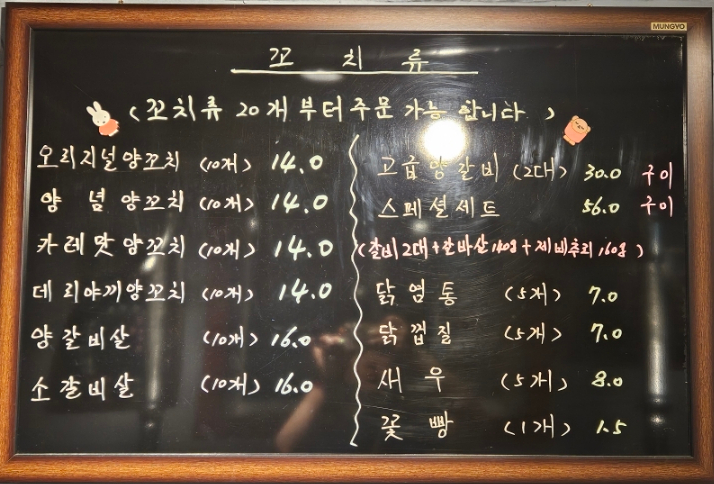 MUNGYO
꼬 치 류
(꼬치류 20개 부터 주문 가능 합니다)
오리지널양꼬치 (10개) 14.0
양 념 양꼬치 (10개) 14.0
카레맛 양꼬치 (10개) 14.0
데리야끼양꼬치 (10개) 14.0
양갈비살 (10개) 16.0
소갈비살 (10개) 16.0
고급양갈비 (2대) 30.0 구이
스페셜세트 56.0 구이
(갈비2대+갈비살140g+제비추리160g)
닭염통 (5개) 7.0
닭껍질 (5개) 7.0
새 우 (5개) 8.0
꽃 빵 (1개) 1.5